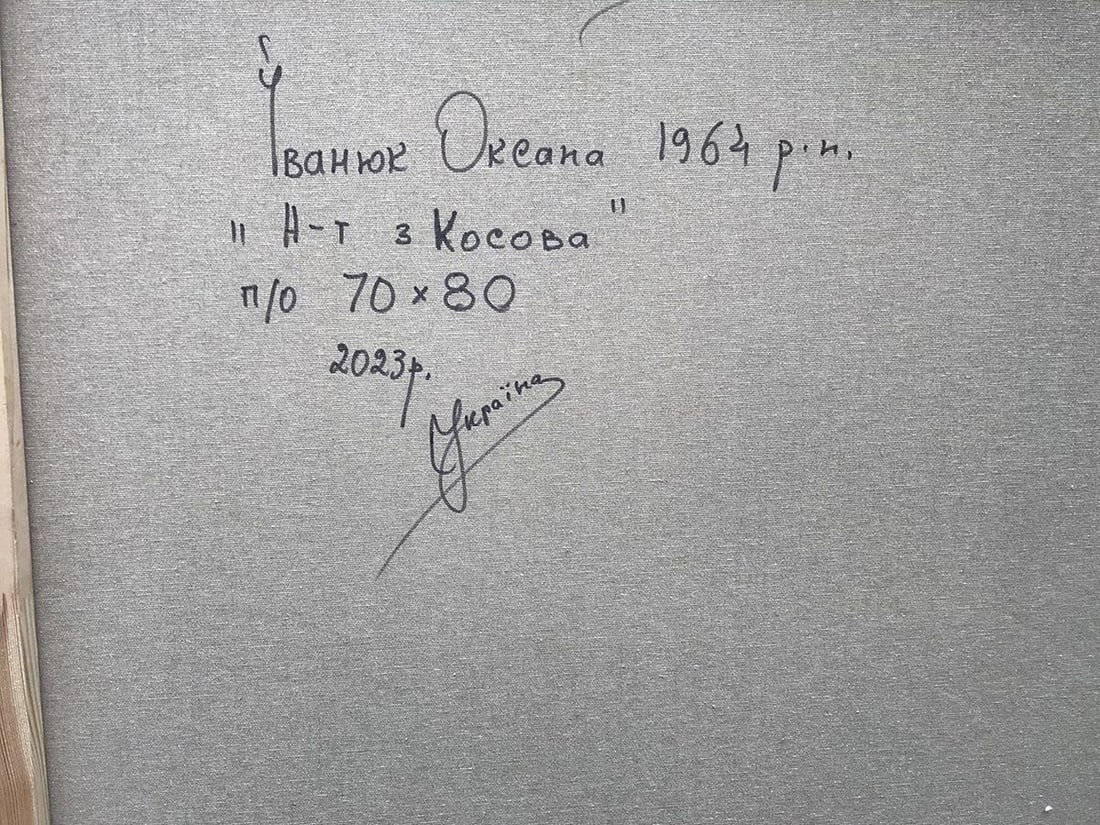 Іванюк Оксана 1964 р.н.
"Н-т з Косова"
п/о 70×80
2023р.
Україна